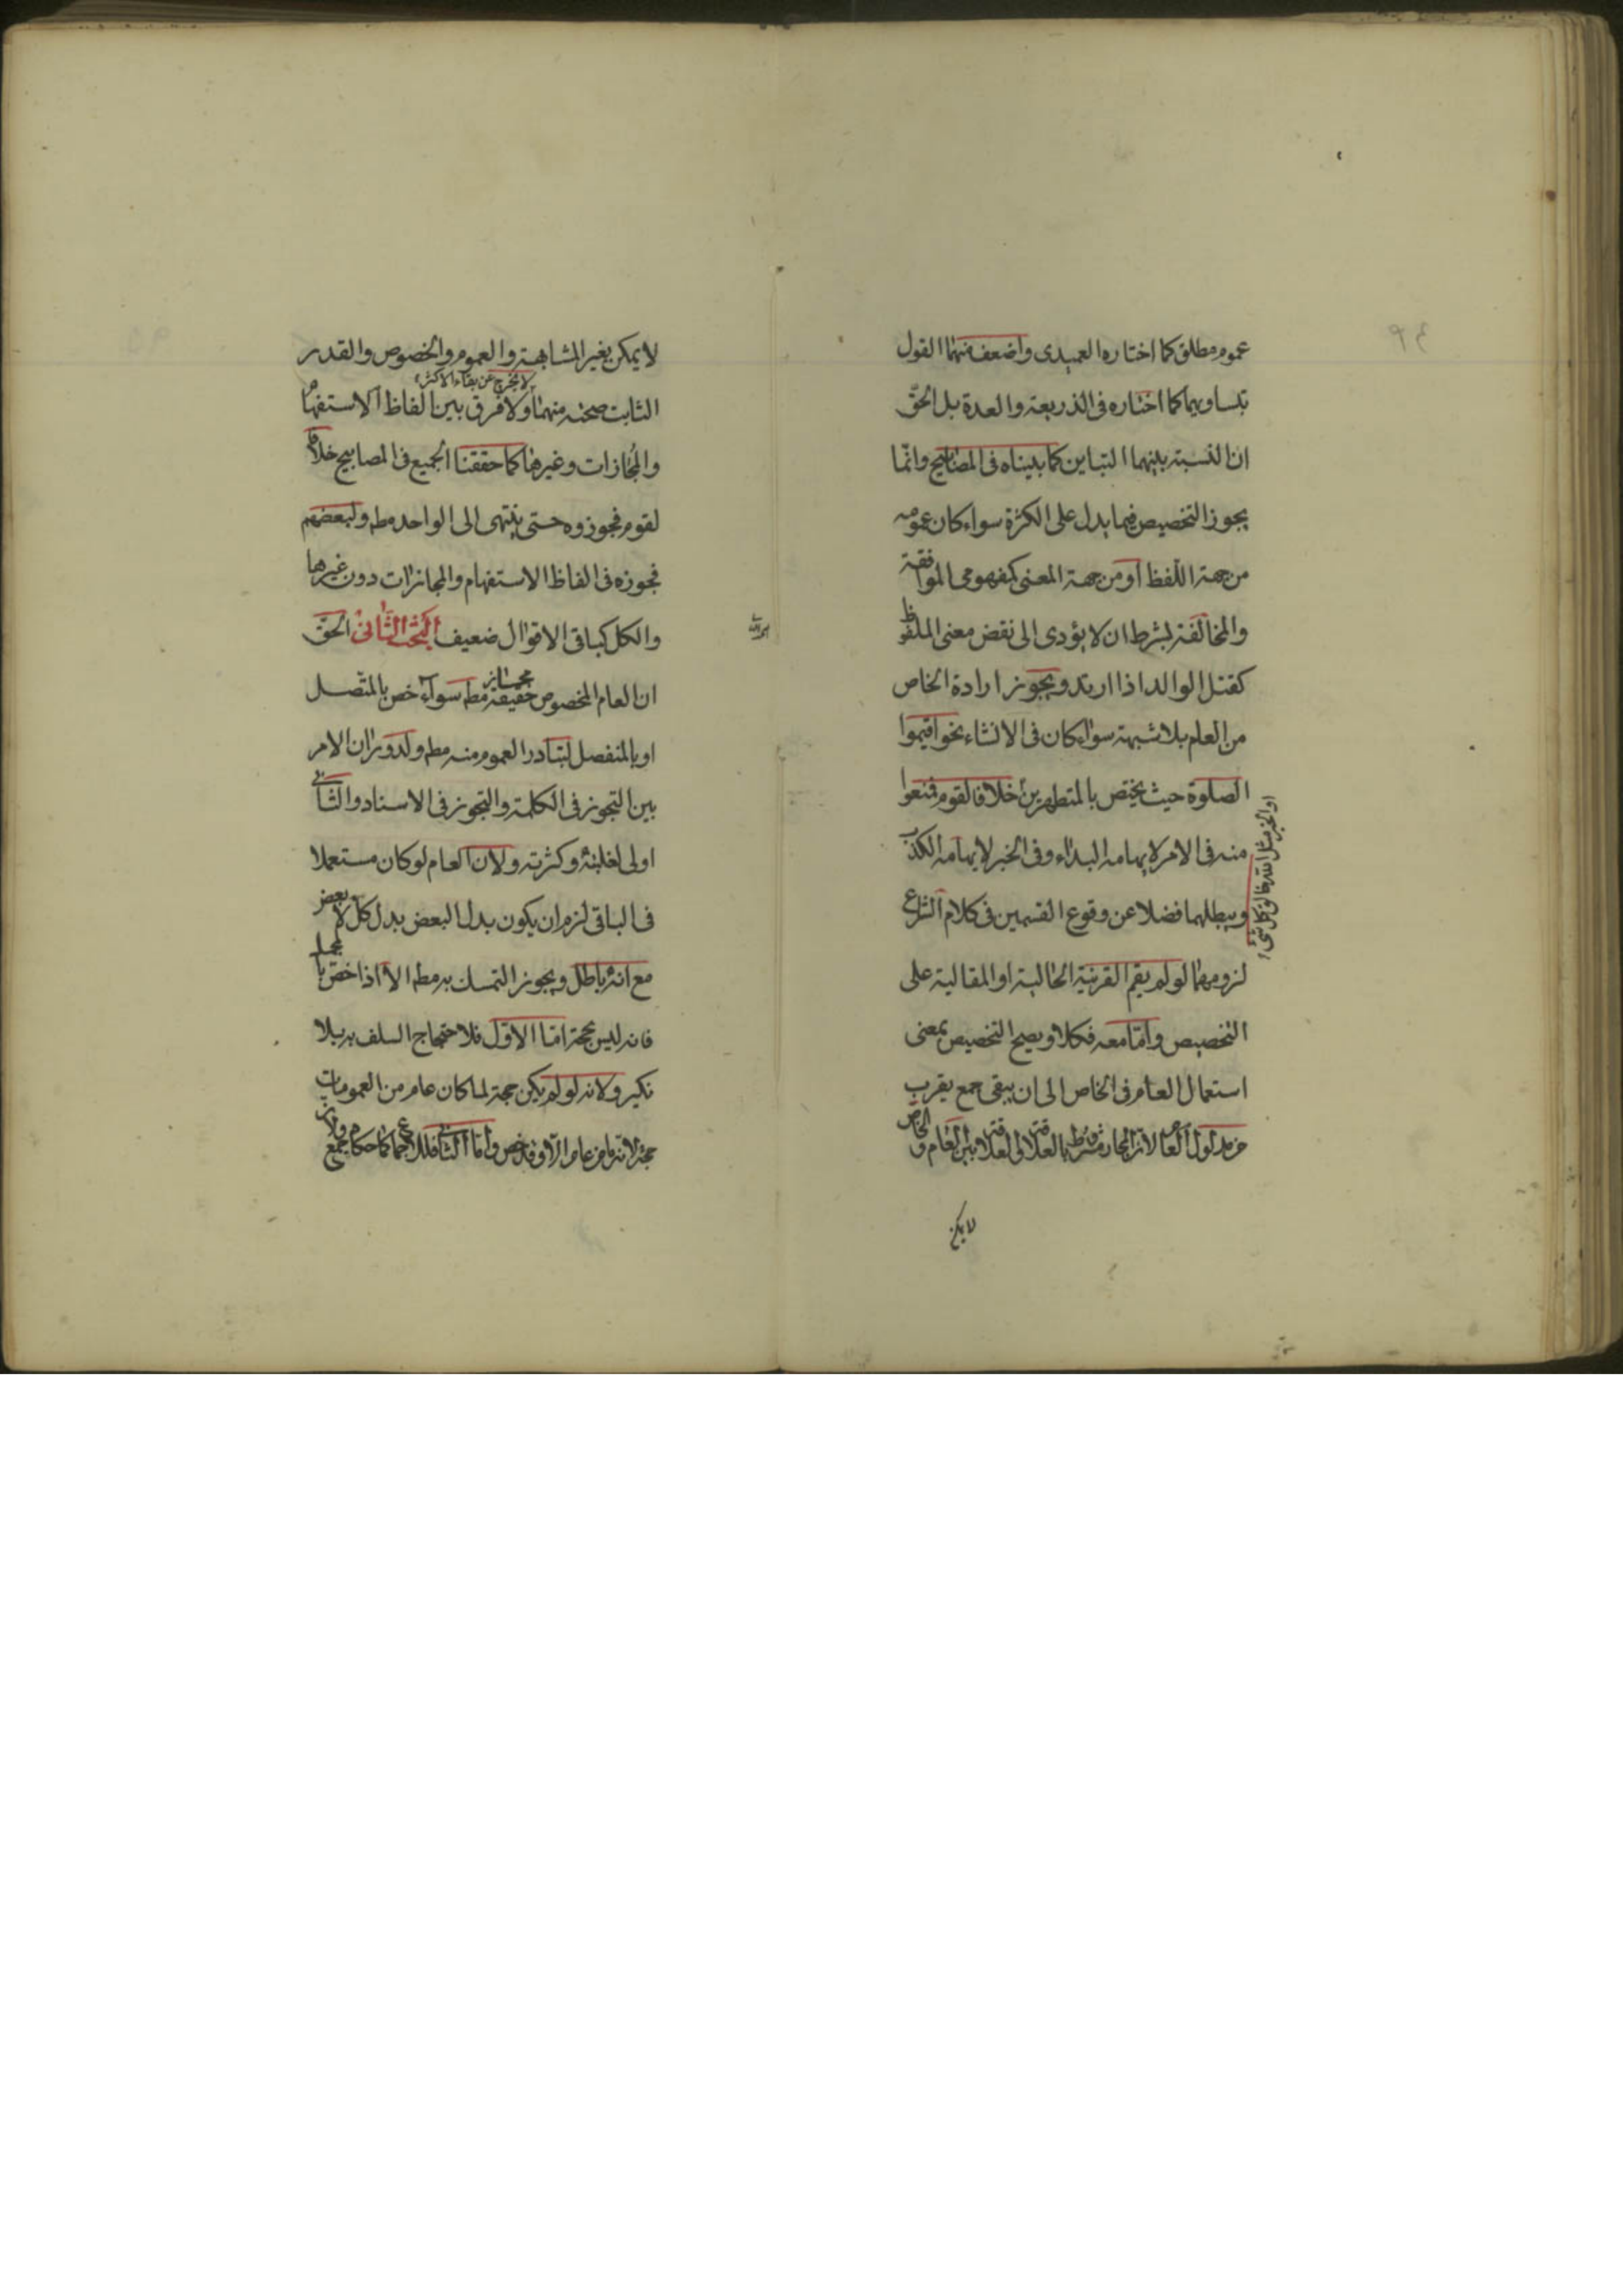 عموم مطلق كما اختاره العميدى واضعف منهما القول
بتساويهما كما اختاره فى الذريعة والعدة بل الحقّ
ان النسبة بينهما التباين كما بيناه فى المصابيح وانّما
يجوز التخصيص فيما يدل على الكثرة سواء كان عمومه
من جهة اللّفظ او من جهة المعنى كمفهومى الموافقة
والمخالفة بشرط ان لا يؤدى الى نقض معنى الملفوظ
كقتل الوالد اذا ارتد ويجوز ارادة الخاص
من العام بلا شبهة سواء كان فى الانشاء نحو اقيموا
الصلوة حيث يختص بالمتطهرين خلافا لقوم فمنعوا
او الخبر مثل الله خالق كل شئ
منه فى الامر لايهامه البداء وفى الخبر لايهامه الكذب
ويبطلهما فضلا عن وقوع القسمين فى كلام الشارع
لزومهما لو لم يقم القرينة الحالية او المقالية على
التخصيص وامّا معه فكلا ويصح التخصيص بمعنى
استعمال العام فى الخاص الى ان يبقى جمع يقرب
من مدلول العام لان المجاز مشروط بالعلاقة والعلاقة بين العام والخاص
لا يمكن
لا يمكن بغير المشابهة والعموم والخصوص والقدر
لا يخرج عن بقاء الاكثر
الثابت صحته منهما ولا فرق بين الفاظ الاستفهام
والمجازات وغيرها كما حققنا الجميع فى المصابيح خلافا
لقوم فجوزوه حتى ينتهى الى الواحد مط ولبعضهم
فجوزه فى الفاظ الاستفهام والمجازات دون غيرها
والكل كباقى الاقوال ضعيف البحث الثّانى الحقّ
ان العام المخصوص حقيقة مجاز مط سواء خص بالمتّصل
او بالمنفصل لتبادر العموم منه مط ولدوران الامر
بين التجوز فى الكلمة والتجوز فى الاسناد والثانى
اولى لغلبته وكثرته ولان العام لو كان مستعملا
فى الباقى لزم ان يكون بدل البعض بدل كل لا بعض
مع انه باطل ويجوز التمسك به مط الا اذا خصّ بمجمل
فانه ليس بحجة امّا الاوّل فلاحتجاج السلف به بلا
نكير ولانه لو لم يكن حجة لما كان عام من العمومات
حجة لانه ما من عام الّا وقد خص وامّا الثانى فللاجماع كما حكاه جمع ولان